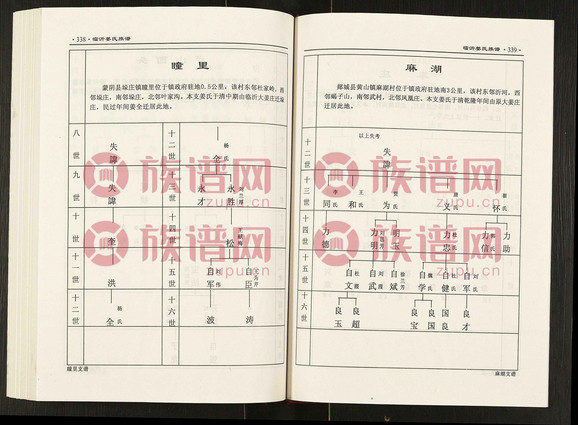 ·338·临沂姜氏族谱
瞳里
蒙阴县垛庄镇瞳里位于镇政府驻地0.5公里，该村东邻杜家岭，西
邻垛庄，南邻垛庄，北邻叶家沟。本支姜氏于清中期由临沂大姜庄迁垛
庄，民过年间姜全迁居此地。
八世
失諱
九世
失諱
十世
奎
十一世
洪
十二世
全
杨氏
十二世
全
杨氏
十三世
永才
永胜
十四世
松
十五世
自军
自臣
十六世
波
涛
瞳里支谱
临沂姜氏族谱 339·
麻湖
郯城县黄山镇麻湖村位于镇政府驻地南3公里，该村东邻沂河，西
邻崛子山，南邻武村，北邻凤凰庄。本支姜氏于清乾隆年间由原大姜庄
迁居此地。
以上失考
十二世
失諱
十三世
同
李氏
和
王氏
为
氏
文
氏
怀
氏
十四世
力德
力明
力玉
力忠
力信
力助
十五世
自文
自武
自斌
自学
自健
自军
十六世
良玉
良超
良宝
良国
良良
良才
麻湖支谱
族谱网
zupu.cn
族谱网
zupu.cn
族谱网
zupu.cn
族谱网
zupu.cn